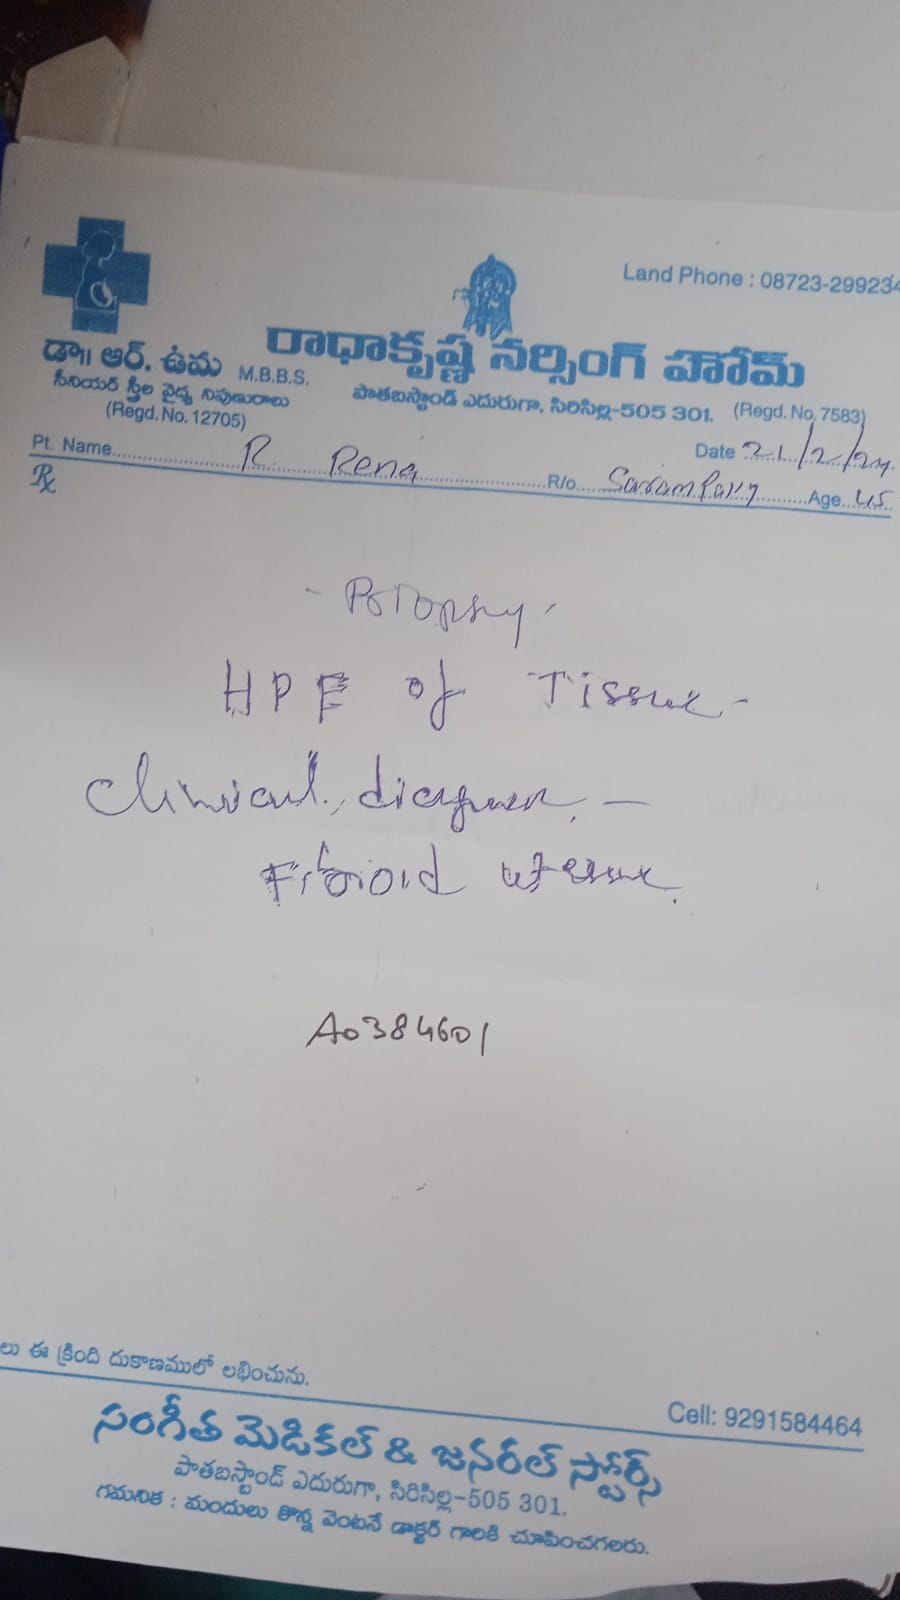 Land Phone : 08723-299234
రాధాకృష్ణ నర్సింగ్ హోమ్
డా॥ ఆర్. ఉమ M.B.B.S.
సీనియర్ స్త్రీల వైద్య నిపుణురాలు
(Regd. No. 12705)
పాతబస్టాండ్ ఎదురుగా, సిరిసిల్ల-505 301. (Regd. No. 7583)
Date 21/2/24
Pt. Name R Rena R/o Sarampally Age 45
Rx
- Biopsy -
HPE of Tissue -
Clinical diagnosis -
Fibroid uterus.
A0384601
లు ఈ క్రింది దుకాణములో లభించును.
Cell: 9291584464
సంగీత మెడికల్ & జనరల్ స్టోర్స్
పాతబస్టాండ్ ఎదురుగా, సిరిసిల్ల-505 301.
గమనిక : మందులు కొన్న వెంటనే డాక్టర్ గారికి చూపించగలరు.